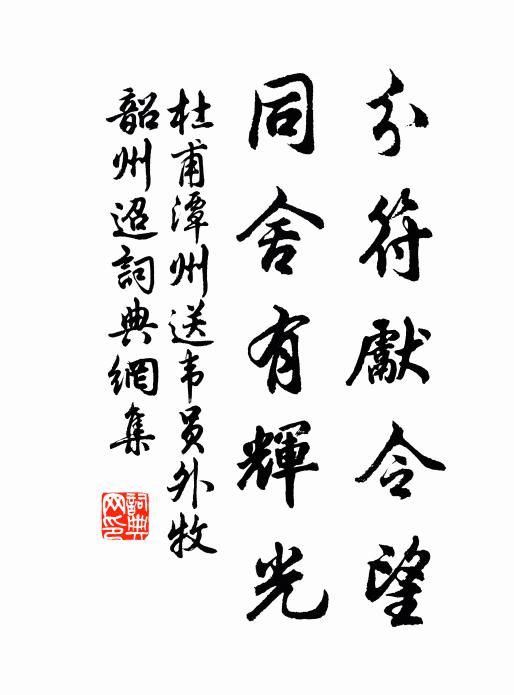 分符獻令望
同舍有輝光
杜甫潭州送韦員外牧
韶州迢詞典網集
詞典网印